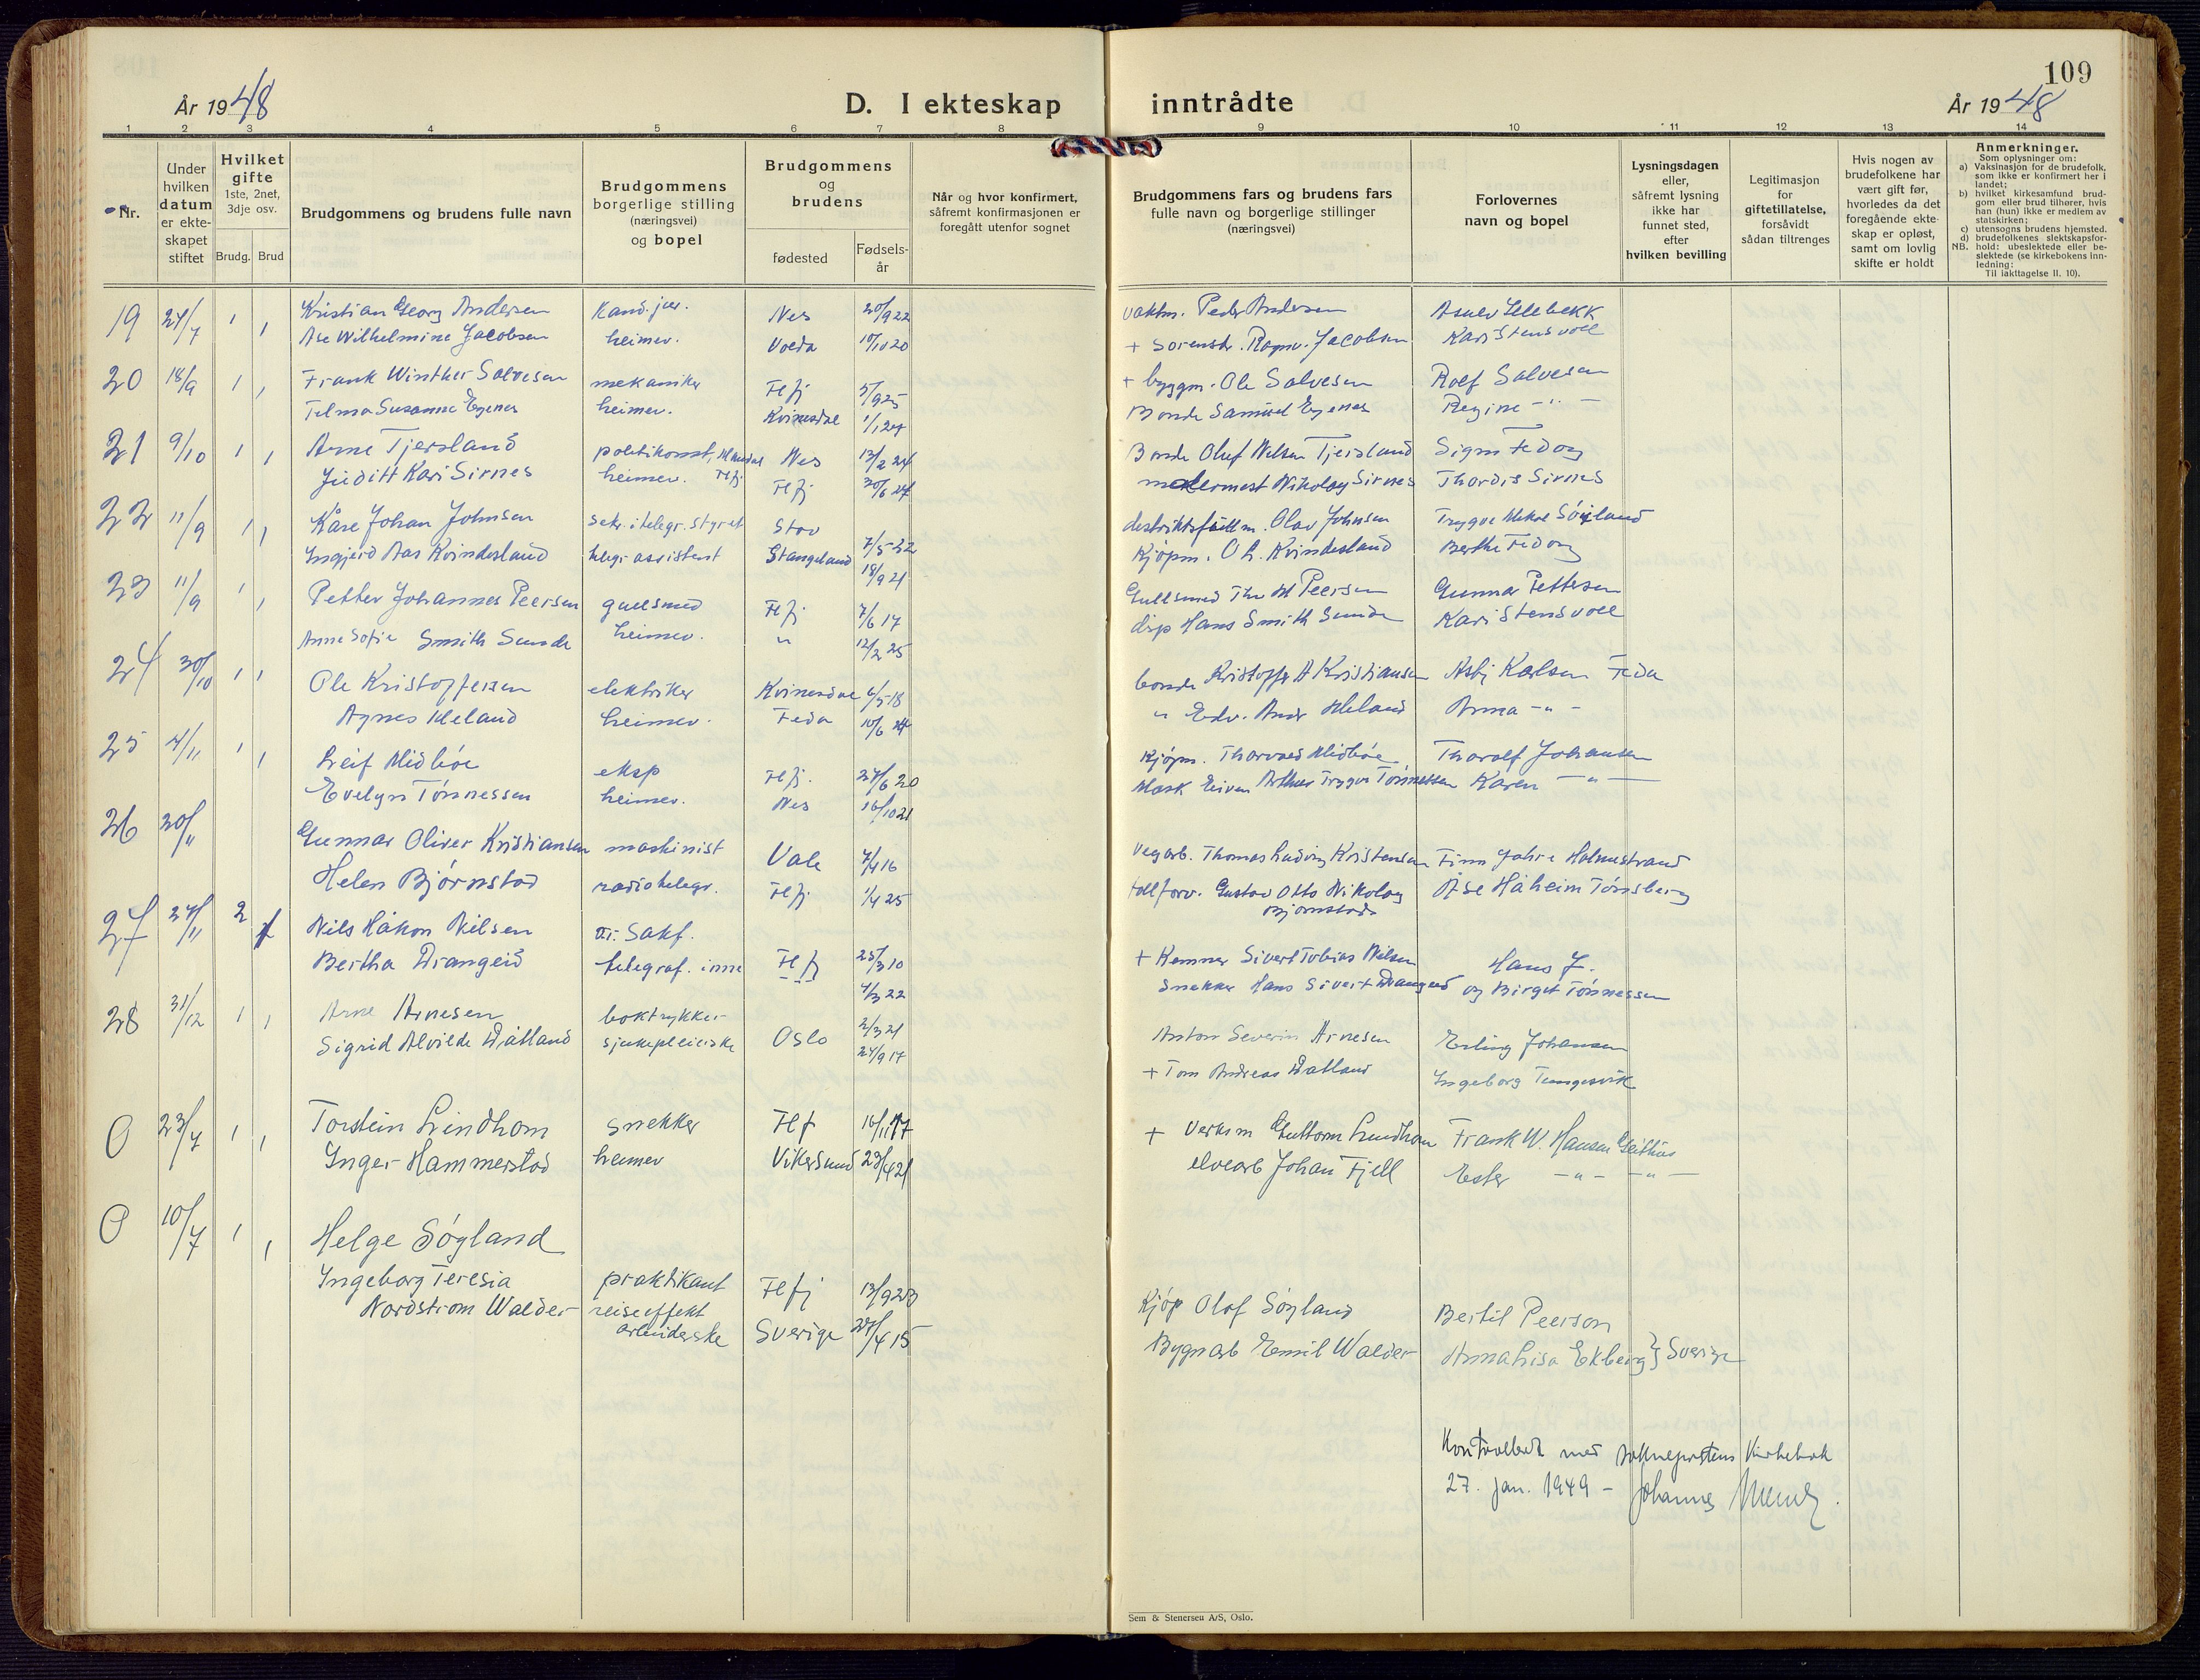 109
År 1948
D. I ekteskap inntrådte
År 1948
1 2 3 4 5 6 7 8 9 10 11 12 13 14
Nr.
Under hvilken datum er ekteskapet stiftet
Hvilket gifte 1ste, 2net, 3dje osv.
Brudg. Brud
Brudgommens og brudens fulle navn
Brudgommens borgerlige stilling (næringsvei) og bopel
Brudgommens og brudens
fødested
Fødselsår
Når og hvor konfirmert, såfremt konfirmasjonen er foregått utenfor sognet
Brudgommens fars og brudens fars fulle navn og borgerlige stillinger (næringsvei)
Forlovernes navn og bopel
Lysningsdagen eller, såfremt lysning ikke har funnet sted, efter hvilken bevilling
Legitimasjon for giftetillatelse, forsåvidt sådan tiltrenges
Hvis nogen av brudefolkene har vært gift før, hvorledes da det foregående ekteskap er opløst, samt om lovlig skifte er holdt
Anmerkninger.
Som oplysninger om:
a) Vaksinasjon for de brudefolk, som ikke er konfirmert her i landet;
b) hvilket kirkesamfund brudgom eller brud tilhører, hvis han (hun) ikke er medlem av statskirken;
c) utensogns brudens hjemsted.
d) brudefolkenes slektskapsforhold: ubeslektede eller beslektede (se kirkebokens innledning:
NB.
Til iakttagelse II. 10).
19 24/7 1 Kristian Georg Andersen Kand. jur. Nes 20/9 22 vaktm. Peder Andersen
1 Åse Wilhelmine Jacobsen heimev. Volda 10/10 20 + Sorenskr. Ragnv. Jacobsen Kari Stensvoll
20 18/9 1 Frank Winther Salvesen mekaniker Flfj 5/9 25 + byggm. Ole Salvesen Rolf Salvesen
1 Telma Susanne Egenes heimev. Kvinesdal 1/1 24 Bonde Samuel Egenes Regine -"-
21 9/10 1 Arne Tjersland politikonst, Mandal Nes 13/2 24 Bonde Oluf Nilsen Tjersland Signe Fedog
1 Juditt Kari Sirnes heimev. Flfj Flfj 30/6 24 malermest Nikolay Sirnes Thordis Sirnes
22 11/9 1 Kåre Johan Johnsen Sekr. i telegr. styret Stod 7/5 22 Olav Johnsen Trygve Søyland
1 Ingjerd Aas Kvindesland telegr assistent Stangeland 18/9 21 Kjøpm. O L. Kvindesland Berthe Fedog
23 11/9 1 Petter Johannes Peersen gullsmed Flfj 7/6 17 Gullsmed Thv M Peersen Gunnar Pettersen
1 Anne Sofie Smith Sunde heimev. " 12/2 25 disp Hans Smith Sunde Kari Stensvoll
24 30/10 1 Ole Kristoffersen elektriker Kvinesdal 6/5 18 bonde Kristoffer A Kristiansen Asbj Karlsen Feda
1 Agnes Meland heimev. Feda 10/6 24 " Edv. Andr Meland Anna -"-
25 4/11 1 Leif Midbøe eksp Flfj. 27/6 20 Kjøpm. Thorvald Midbøe Thoralf Johansen
1 Evelyn Tønnessen heimev. Nes 16/10 21 Mask Trygve Tønnessen Karen -"-
26 20/11 Gunnar Oliver Kristiansen maskinist Våle 7/4 16 Vegarb. Thomas Ludvig Kristensen Finn Jahre Holmestrand
Helen Bjørnstad radiotelegr. Flfj 1/4 25 tollforv. Gustav Otto Nikolay Bjørnstad Åse Håheim Tønsberg
27 27/11 2 Nils Håkon Nilsen o.r. sakf. Flfj 25/3 10 + Kemner Sivert Tobias Nilsen Hans J.
1 Bertha Drangeid telegraf. inne 4/3 22 Snekker Hans Sivert Drangeid og Birget Tønnessen
28 31/12 1 Arne Arnesen boktrykker Oslo 2/3 21 Anton Severin Arnesen Erling Johansen
1 Sigrid Alvilde Dåtland sjukepleierske 24/9 17 + Tom Andreas Datland Ingeborg Tungesvik
0 23/7 1 Torstein Lindhom snekker Flf 16/11 17 + Verksm Guttorm Lundhom Frank W. Hansen Geithus
1 Inger Hammerstad heimev Vikersund 23/4 21 elvearb Johan Fjell Ester -"- -"-
0 10/7 1 1 Helge Søyland praktikant Flfj 13/9 23 Kjøp Olaf Søyland Bertil Peerson
Ingeborg Teresia Nordstrom Walder reiseeffekt arbeiderske Sverige 27/4 15 Bygnarb Emil Walder Anna Lisa Ekberg } Sverige
Kontrollert med sokneprestens kirkebok
27. Jan. 1949 - Johannes
Sem & Stenersen A/S, Oslo.